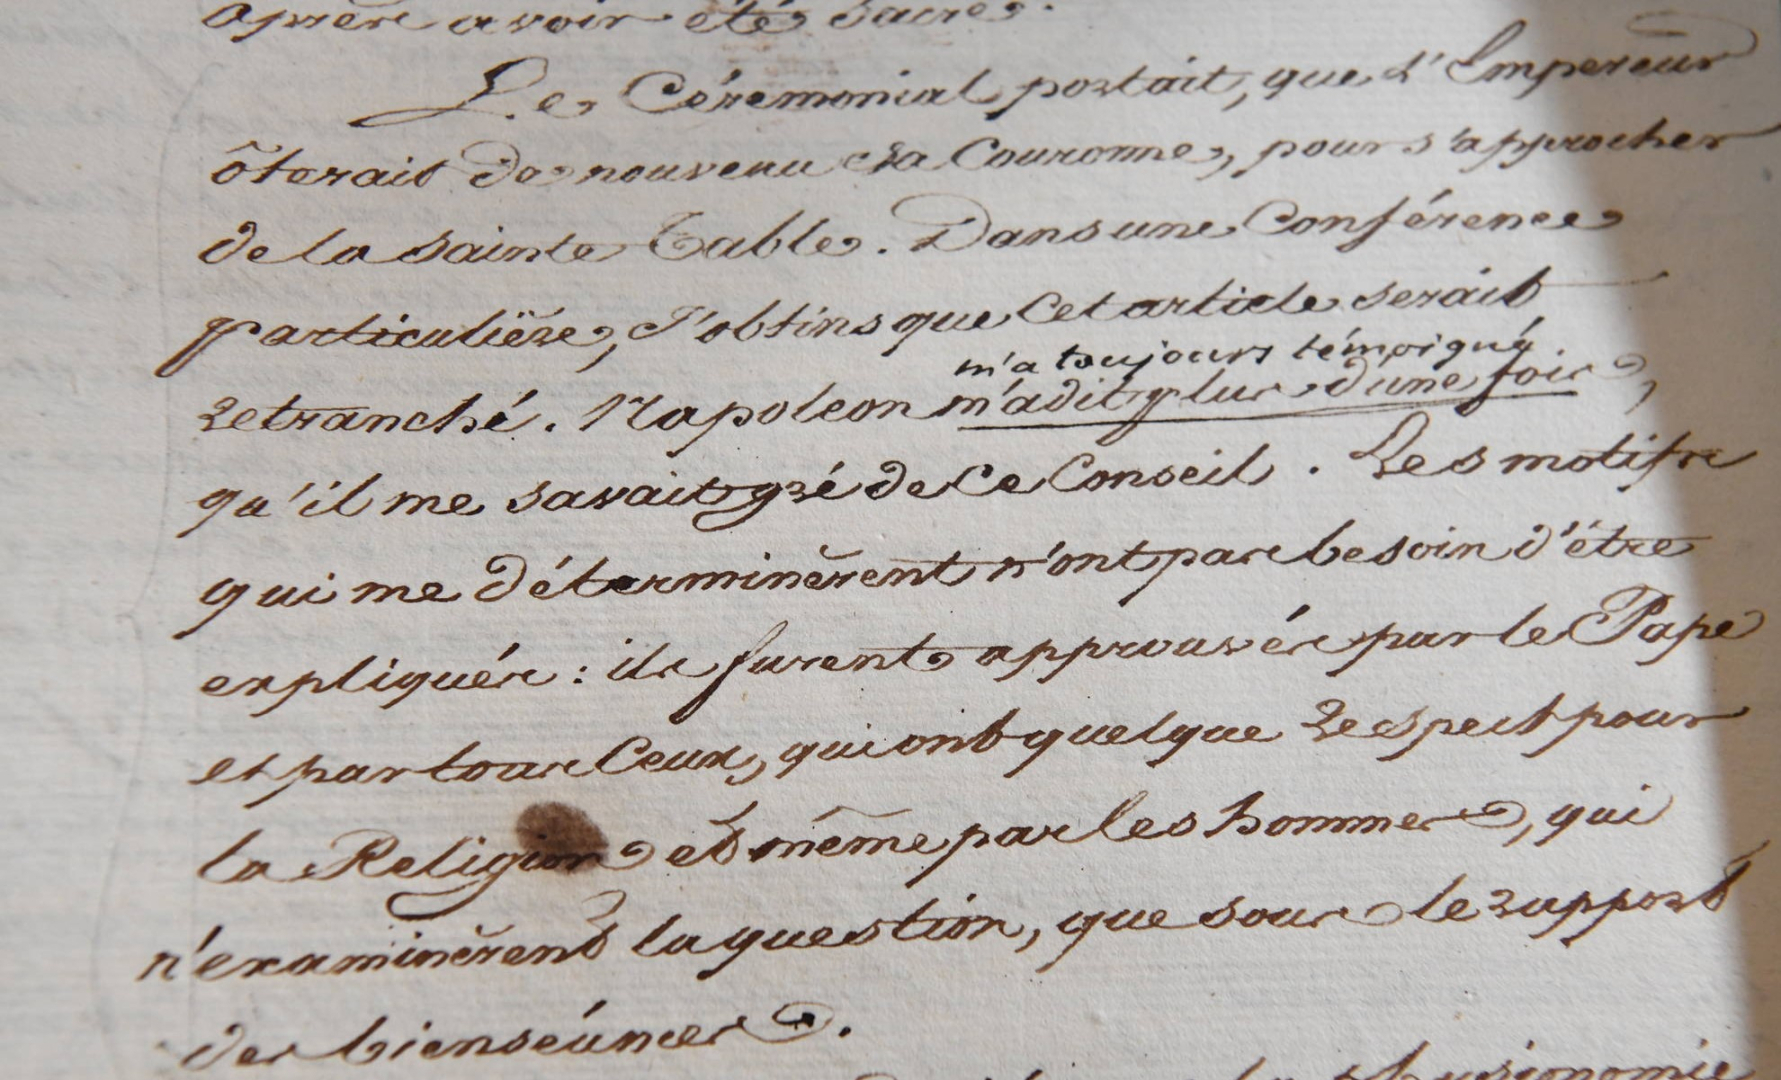 après avoir été sacré.
Le Cérémonial portait, que l'Empereur
ôterait de nouveau sa Couronne, pour s'approcher
de la sainte Table. Dans une Conférence
particulière, j'obtins que Cet article serait
m'a toujours témoigné
retranché. Napoleon m'a dit plus d'une fois,
qu'il me savait gré de Ce Conseil. Les motifs
qui me déterminèrent n'ont pas besoin d'être
expliqués : ils furent approuvés par le Pape
et par tous Ceux, qui ont quelque respect pour
la Religion et même par les hommes, qui
n'examinèrent la question, que sous le rapport
des bienséances.
physionomie